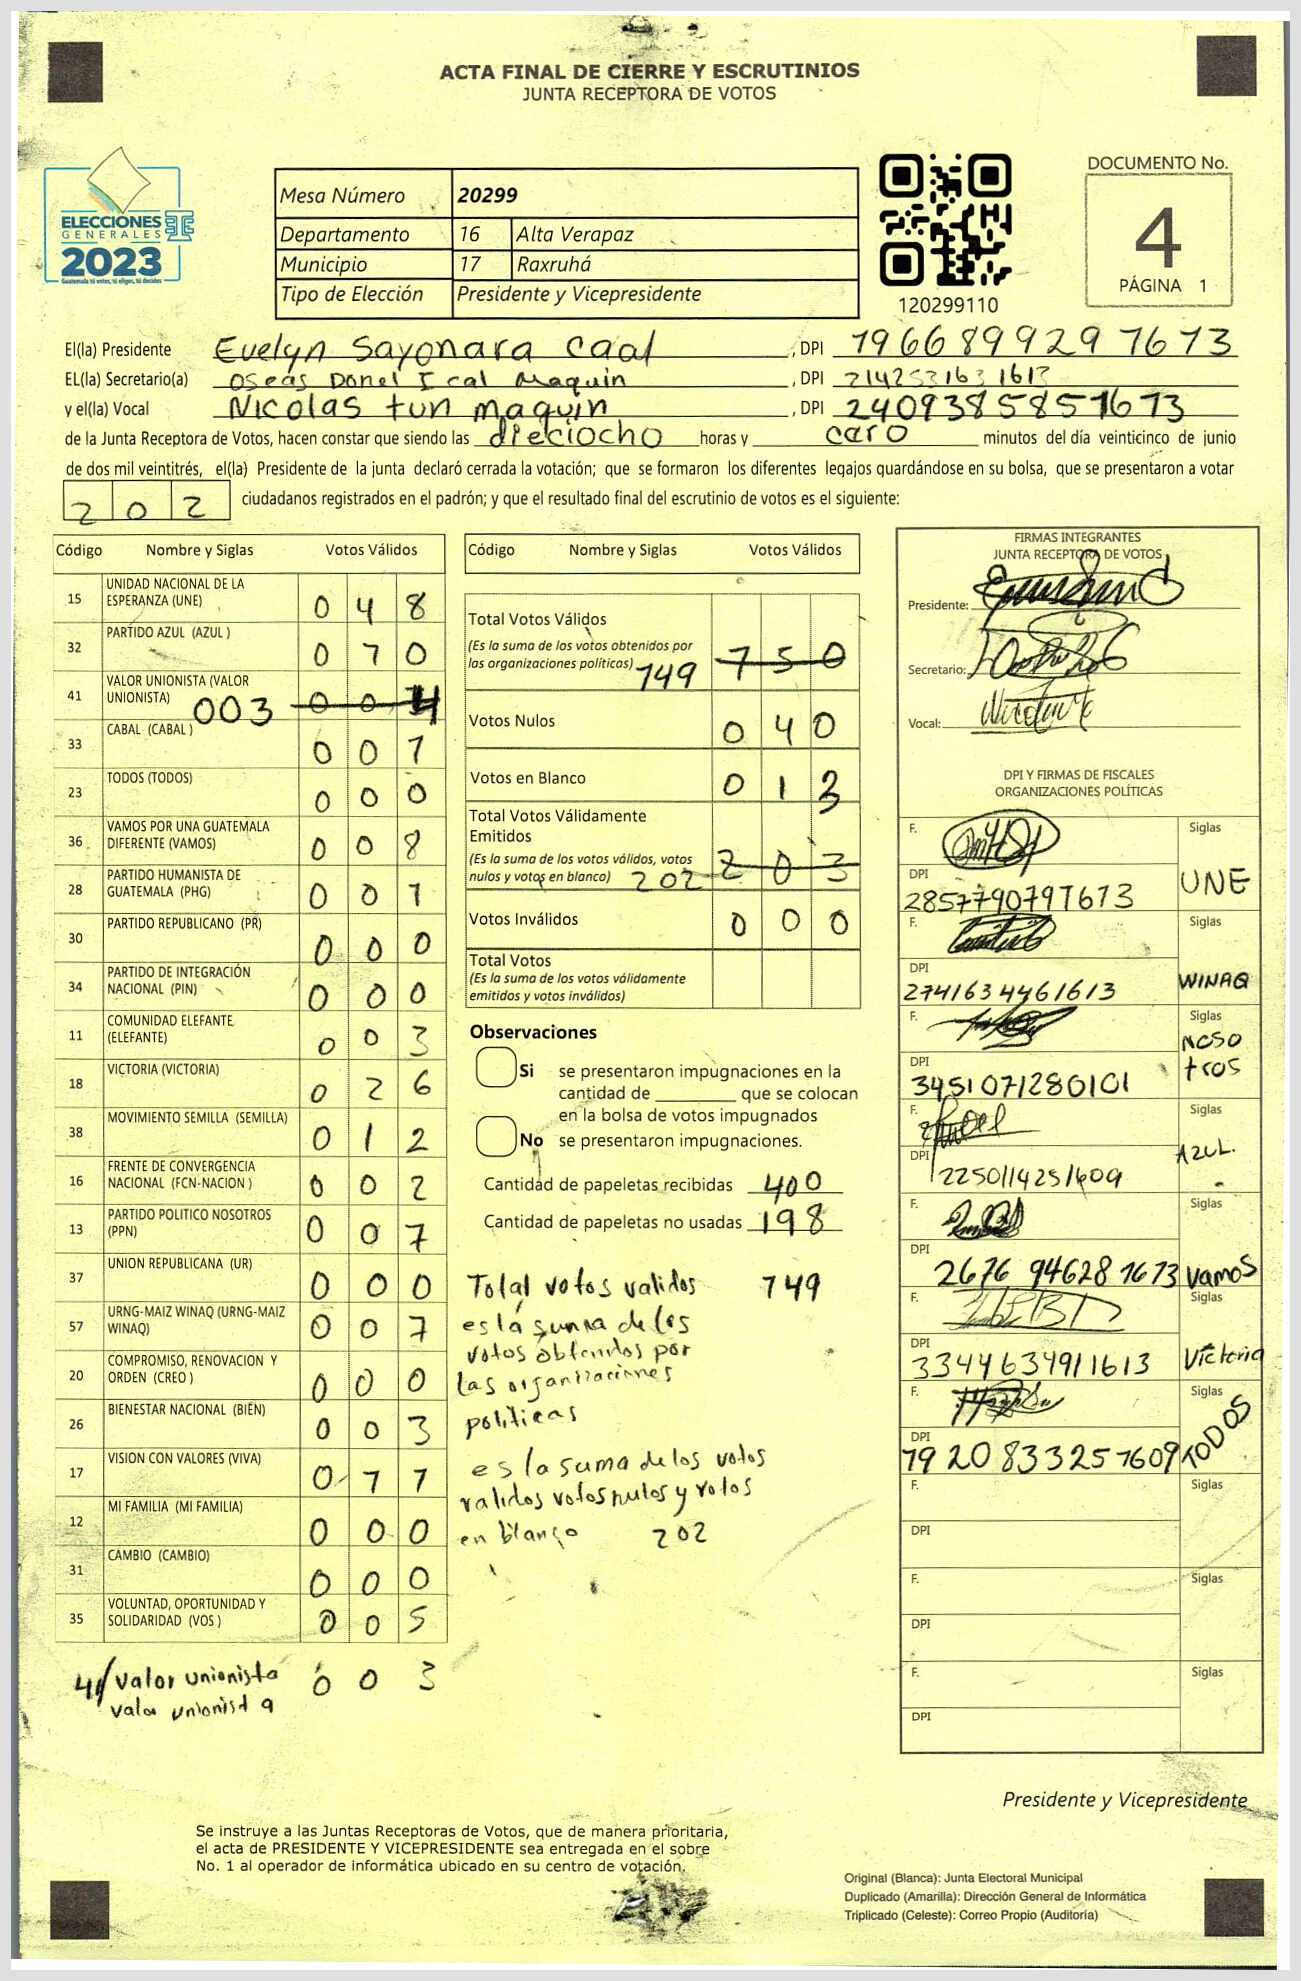 ACTA FINAL DE CIERRE Y ESCRUTINIOS
JUNTA RECEPTORA DE VOTOS
ELECCIONES
GENERALES
2023
Guatemala tú votas, tú eliges, tú decides
Mesa Número 20299
Departamento 16 Alta Verapaz
Municipio 17 Raxruhá
Tipo de Elección Presidente y Vicepresidente
120299110
DOCUMENTO No.
4
PÁGINA 1
El(la) Presidente Evelyn Sayonara Caal , DPI 1966899297673
EL(la) Secretario(a) Oseas Donel Ical Maquin , DPI 2142531631613
y el(la) Vocal Nicolas tun maquin , DPI 2409385851673
de la Junta Receptora de Votos, hacen constar que siendo las dieciocho horas y cero minutos del día veinticinco de junio
de dos mil veintitrés, el(la) Presidente de la junta declaró cerrada la votación; que se formaron los diferentes legajos guardándose en su bolsa, que se presentaron a votar
202 ciudadanos registrados en el padrón; y que el resultado final del escrutinio de votos es el siguiente:
Código Nombre y Siglas Votos Válidos
15 UNIDAD NACIONAL DE LA ESPERANZA (UNE) 0 4 8
32 PARTIDO AZUL (AZUL ) 0 7 0
41 VALOR UNIONISTA (VALOR UNIONISTA) 003 0 0 4
33 CABAL (CABAL ) 0 0 1
23 TODOS (TODOS) 0 0 0
36 VAMOS POR UNA GUATEMALA DIFERENTE (VAMOS) 0 0 8
28 PARTIDO HUMANISTA DE GUATEMALA (PHG) 0 0 1
30 PARTIDO REPUBLICANO (PR) 0 0 0
34 PARTIDO DE INTEGRACIÓN NACIONAL (PIN) 0 0 0
11 COMUNIDAD ELEFANTE (ELEFANTE) 0 0 3
18 VICTORIA (VICTORIA) 0 2 6
38 MOVIMIENTO SEMILLA (SEMILLA) 0 1 2
16 FRENTE DE CONVERGENCIA NACIONAL (FCN-NACION ) 0 0 2
13 PARTIDO POLITICO NOSOTROS (PPN) 0 0 7
37 UNION REPUBLICANA (UR) 0 0 0
57 URNG-MAIZ WINAQ (URNG-MAIZ WINAQ) 0 0 7
20 COMPROMISO, RENOVACION Y ORDEN (CREO ) 0 0 0
26 BIENESTAR NACIONAL (BIEN) 0 0 3
17 VISION CON VALORES (VIVA) 0 1 1
12 MI FAMILIA (MI FAMILIA) 0 0 0
31 CAMBIO (CAMBIO) 0 0 0
35 VOLUNTAD, OPORTUNIDAD Y SOLIDARIDAD (VOS ) 0 0 5
41 Valor unionista 0 0 3
Valor unionista
Código Nombre y Siglas Votos Válidos
Total Votos Válidos
(Es la suma de los votos obtenidos por
las organizaciones políticas) 149 1 5 0
Votos Nulos 0 4 0
Votos en Blanco 0 1 3
Total Votos Válidamente
Emitidos
(Es la suma de los votos válidos, votos
nulos y votos en blanco) 202 2 0 3
Votos Inválidos 0 0 0
Total Votos
(Es la suma de los votos válidamente
emitidos y votos inválidos)
Observaciones
Si se presentaron impugnaciones en la
cantidad de ________ que se colocan
en la bolsa de votos impugnados
No se presentaron impugnaciones.
Cantidad de papeletas recibidas 400
Cantidad de papeletas no usadas 198
Total votos validos 149
es la suma de los
votos obtenidos por
las organizaciones
politicas
es la suma de los votos
validos votos nulos y votos
en blanco 202
FIRMAS INTEGRANTES
JUNTA RECEPTORA DE VOTOS
Presidente:
Secretario:
Vocal:
DPI Y FIRMAS DE FISCALES
ORGANIZACIONES POLÍTICAS
F. Siglas
DPI 2857790791673 UNE
F. Siglas
DPI 2741634461613 WINAQ
F. Siglas
DPI 3451071280101 Nosotros
F. Siglas
DPI 2250114251609 AZUL.
F. Siglas
DPI 2676 94628 1673 Vamos
F. Siglas
DPI 3344634911613 Victoria
F. Siglas
DPI 1920833251609 TODOS
F. Siglas
DPI
F. Siglas
DPI
F. Siglas
DPI
Presidente y Vicepresidente
Se instruye a las Juntas Receptoras de Votos, que de manera prioritaria,
el acta de PRESIDENTE Y VICEPRESIDENTE sea entregada en el sobre
No. 1 al operador de informática ubicado en su centro de votación.
Original (Blanca): Junta Electoral Municipal
Duplicado (Amarilla): Dirección General de Informática
Triplicado (Celeste): Correo Propio (Auditoría)